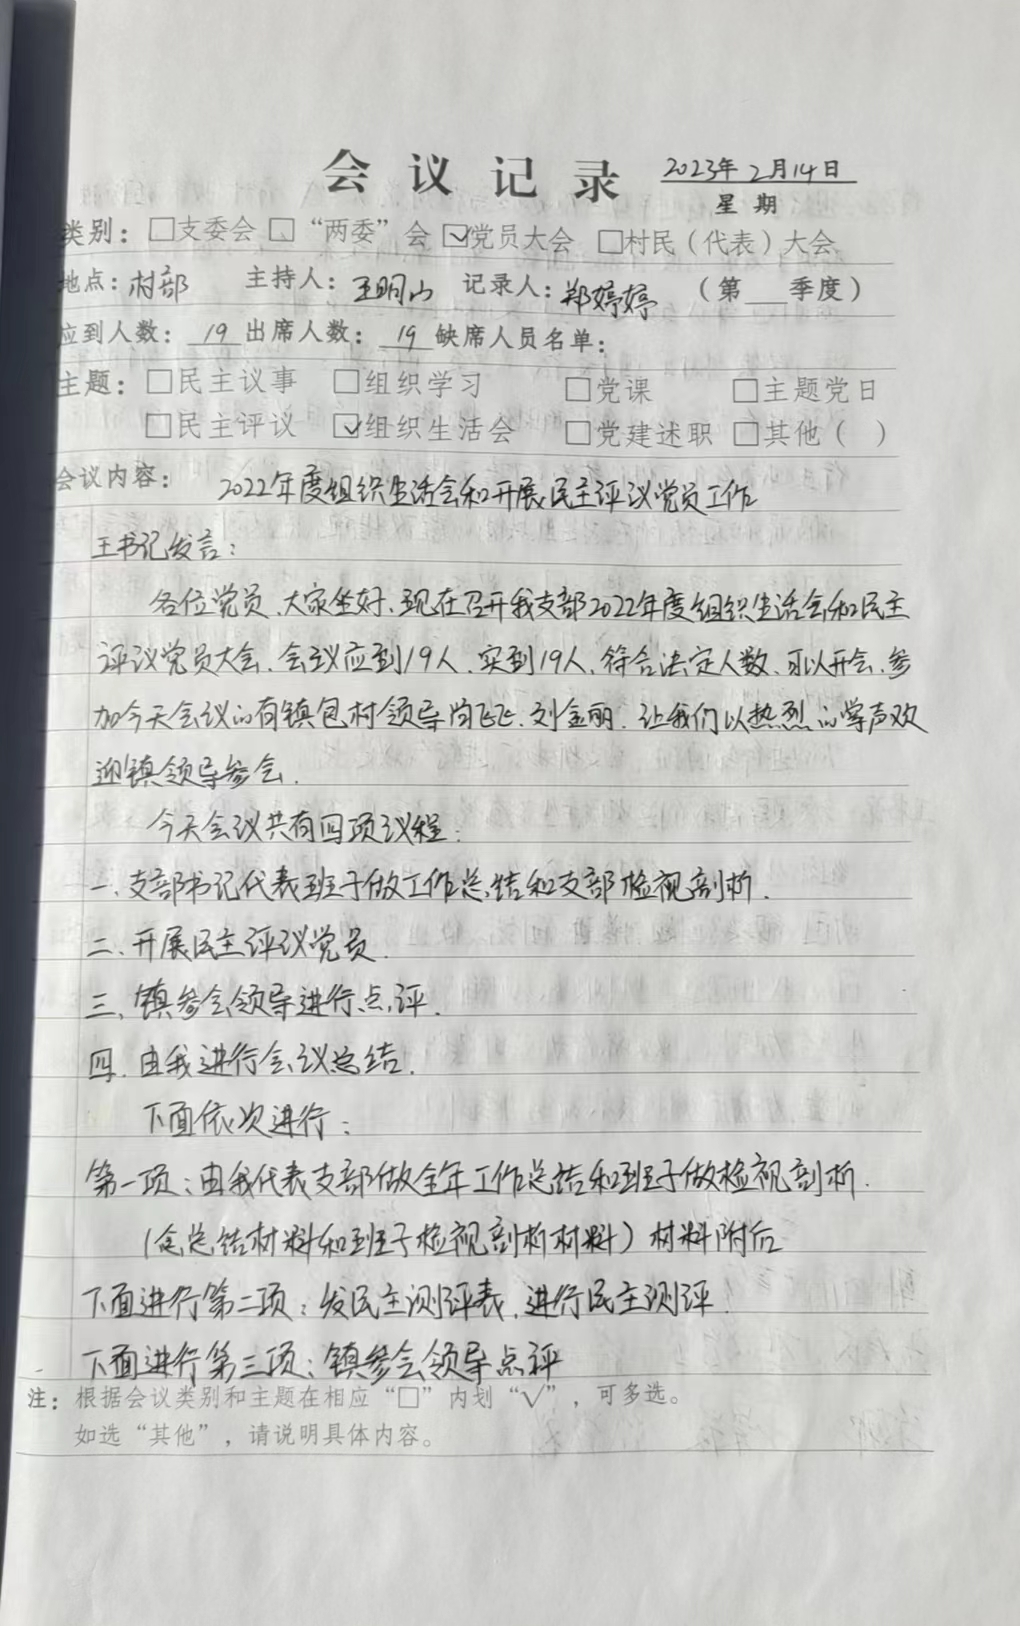 会议记录 2023年2月14日
星期
类别：□支委会 □“两委”会 ☑党员大会 □村民（代表）大会
地点：村部 主持人：王明山 记录人：郑婷婷 （第 季度）
应到人数：19 出席人数：19 缺席人员名单：
主题：□民主议事 □组织学习 □党课 □主题党日
□民主评议 ☑组织生活会 □党建述职 □其他（ ）
会议内容： 2022年度组织生活会和开展民主评议党员工作
王书记发言：
各位党员、大家坐好、现在召开我支部2022年度组织生活会和民主
评议党员大会、会议应到19人、实到19人、符合法定人数、可以开会、参
加今天会议的有镇包村领导 飞飞、刘金丽、让我们以热烈的掌声欢
迎镇领导参会.
今天会议共有四项议程：
一、支部书记代表班子做工作总结和支部检视剖析.
二、开展民主评议党员.
三、镇参会领导进行点评.
四、由我进行会议总结.
下面依次进行：
第一项：由我代表支部做全年工作总结和班子做检视剖析.
（念总结材料和班子检视剖析材料）材料附后
下面进行第二项：发民主测评表、进行民主测评.
下面进行第三项：镇参会领导点评
注：根据会议类别和主题在相应“□”内划“√”，可多选。
如选“其他”，请说明具体内容。